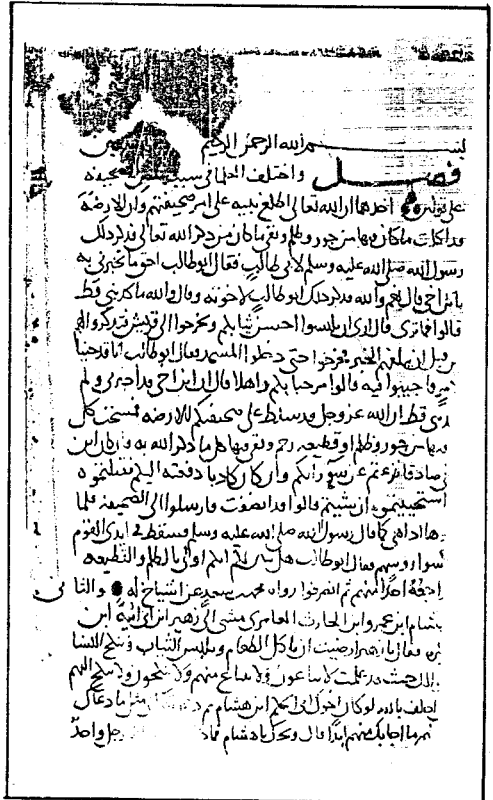 بسم الله الرحمن الرحيم
فصل واختلف العلماء في سبب نقض الصحيفة
على قولين احدهما ان الله تعالى اطلع نبيه على امر صحيفتهم وان الارضة
قد اكلت ما كان فيها من جور وظلم وبقي ما كان من ذكر الله تعالى فذكر ذلك
رسول الله صلى الله عليه وسلم لابي طالب فقال ابو طالب احق ما تخبرني به
يا ابن اخي قال نعم والله فذكر ذلك ابو طالب لاخوته وقال والله ما كذبني قط
قالوا فما ترى قال ارى ان تلبسوا احسن ثيابكم وتخرجوا الى قريش فتذكروا لهم
من قبل ان يبلغهم الخبر فخرجوا حتى دخلوا المسجد فقال ابو طالب انا قد جئنا
فاجيبوا فيه قالوا مرحبا بكم واهلا قال ان ابن اخي قد اخبرني ولم
قط ان الله عز وجل قد سلط على صحيفتكم الارضة فمسحت كل
من جور وظلم او قطيعة رحم وبقي فيها كل ما ذكر الله به فان كان ابن
صادقا نزعتم عن سوء رأيكم وان كان كاذبا دفعته اليكم فقتلتموه
استحييتموه ان شئتم قالوا قد انصفت فارسلوا الى الصحيفة فلما
اذا هي كما قال رسول الله صلى الله عليه وسلم فسقط في ايدي القوم
رؤسهم فقال ابو طالب هل تبين لكم انكم اولى بالظلم والقطيعة
احد منهم ثم انصرفوا رواه محمد بن سعد عن اشياخ له والثاني
هشام ابن عمرو ابن الحارث العامري مشى الى زهير ابن ابي امية ابن
فقال يا زهير ارضيت ان تاكل الطعام وتلبس الثياب وتنكح النسا
حيث قد علمت لا يباعون ولا يبتاع منهم ولا ينكحون ولا ينكح اليهم
احلف بالله لو كان اخوال ابي الحكم ابن هشام ثم مثل ما دعاك
ما اجابك منهم ابدا قال ويحك يا هشام رجل واحد